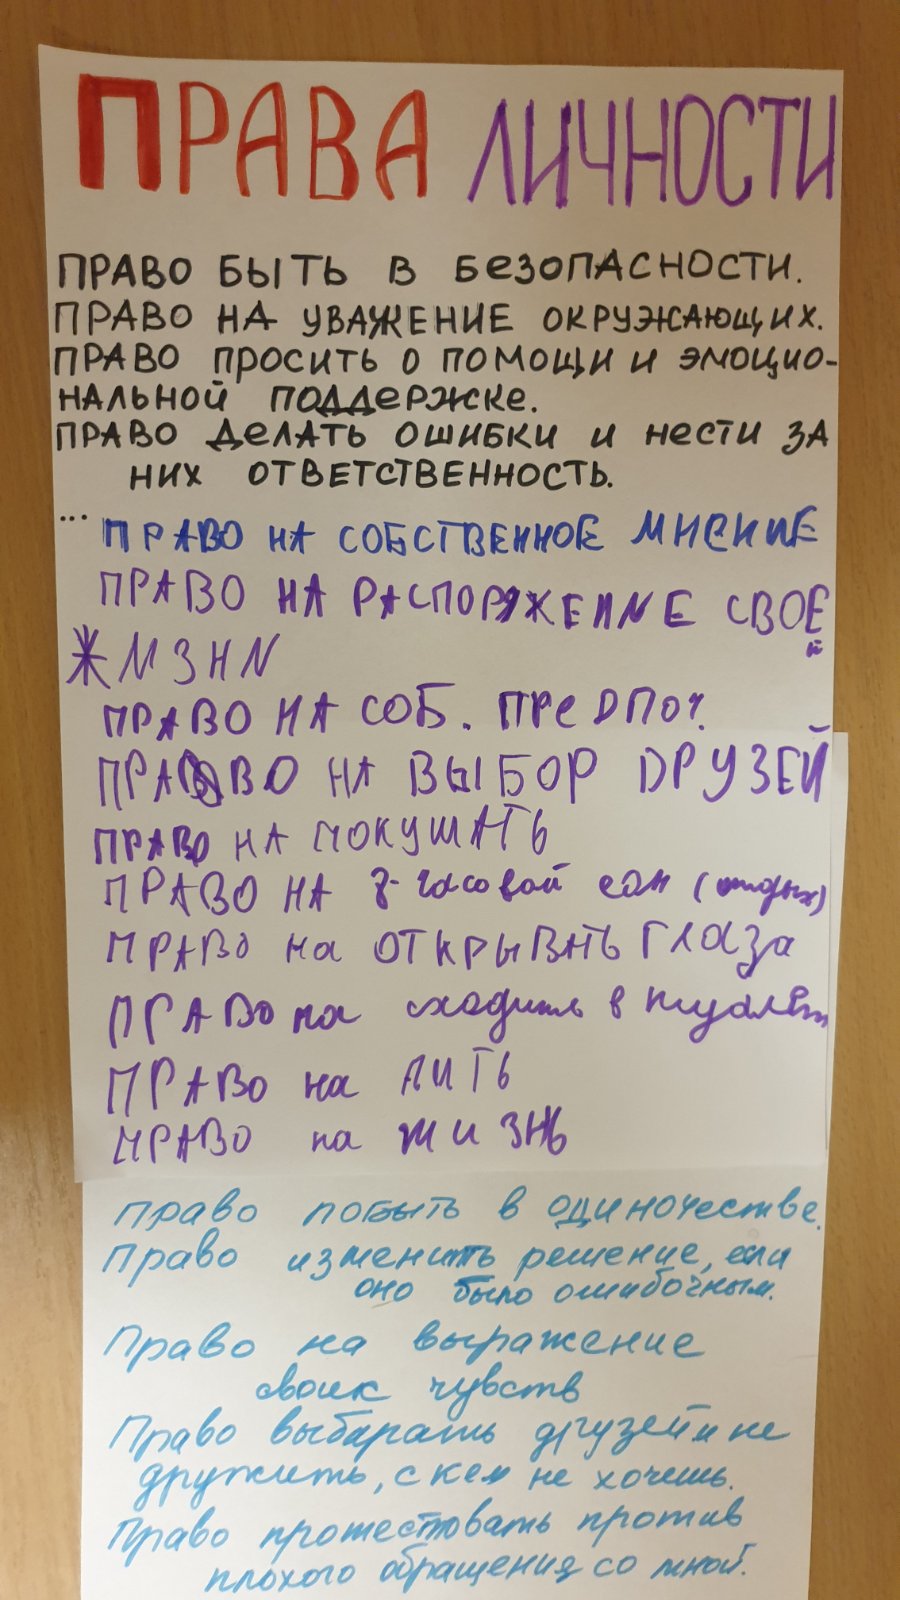 ПРАВА ЛИЧНОСТИ
ПРАВО БЫТЬ В БЕЗОПАСНОСТИ.
ПРАВО НА УВАЖЕНИЕ ОКРУЖАЮЩИХ.
ПРАВО ПРОСИТЬ О ПОМОЩИ И ЭМОЦИО-
НАЛЬНОЙ ПОДДЕРЖКЕ.
ПРАВО ДЕЛАТЬ ОШИБКИ И НЕСТИ ЗА
НИХ ОТВЕТСТВЕННОСТЬ.
...
ПРАВО НА СОБСТВЕННОЕ МНЕНИЕ
ПРАВО НА РАСПОРЯЖЕНИЕ СВОЕЙ
ЖИЗНИ
ПРАВО НА СОБ. ПРЕДПОЧ.
ПРАВО НА ВЫБОР ДРУЗЕЙ
ПРАВО НА ПОКУШАТЬ
ПРАВО НА 8-часовой сон (отдых)
ПРАВО на ОТКРЫВАТЬ ГЛАЗА
ПРАВО на сходить в туалет
ПРАВО на ПИТЬ
ПРАВО на ЖИЗНЬ
Право побыть в одиночестве.
Право изменить решение, если
оно было ошибочным.
Право на выражение
своих чувств
Право выбирать друзей и не
дружить, с кем не хочешь.
Право протестовать против
плохого обращения со мной.